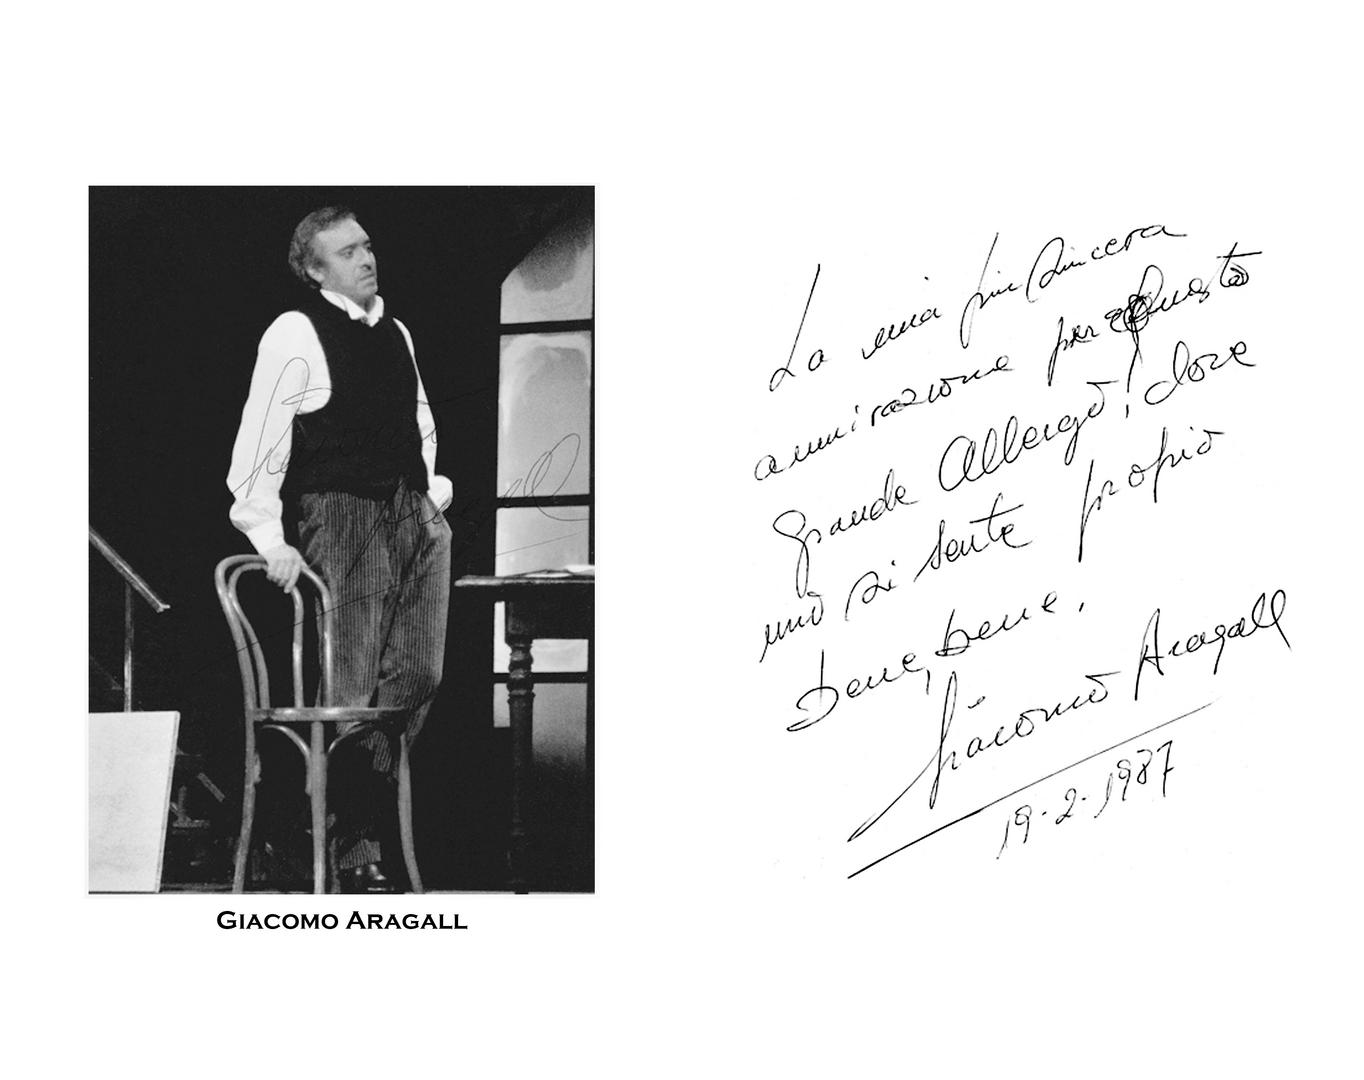 Giacomo
Aragall
GIACOMO ARAGALL
La mia piu sincera
ammirazione per questo
grande Albergo, dove
uno si sente propio
bene, bene.
Giacomo Aragall
19-2-1987